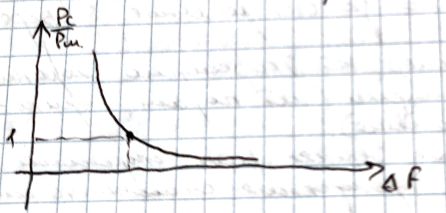 Pc
Pш.
1
ΔF